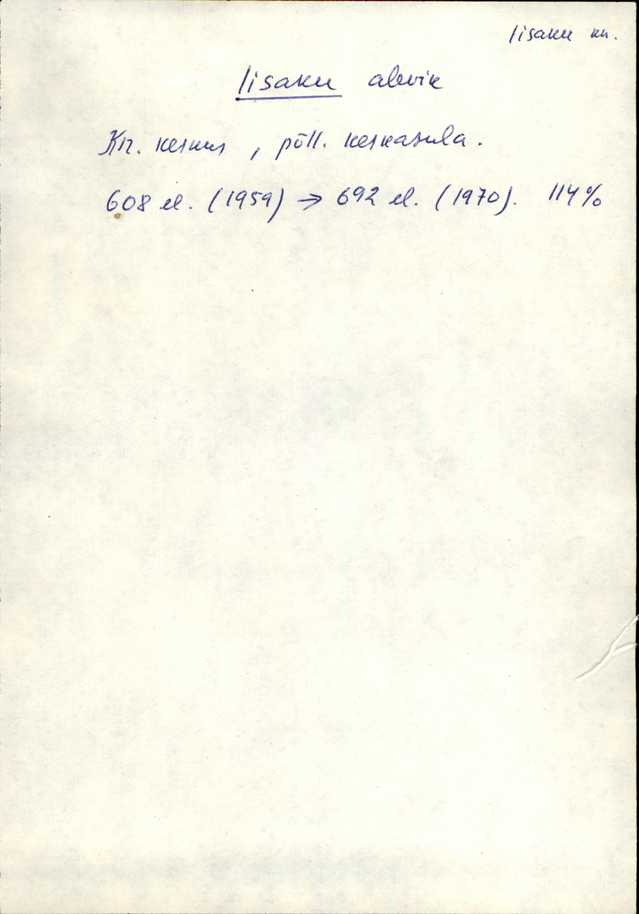 Iisaku kn.
Iisaku alevik
Kn. keskus, põll. keskasula.
608 el. (1959) → 692 el. (1970). 114%